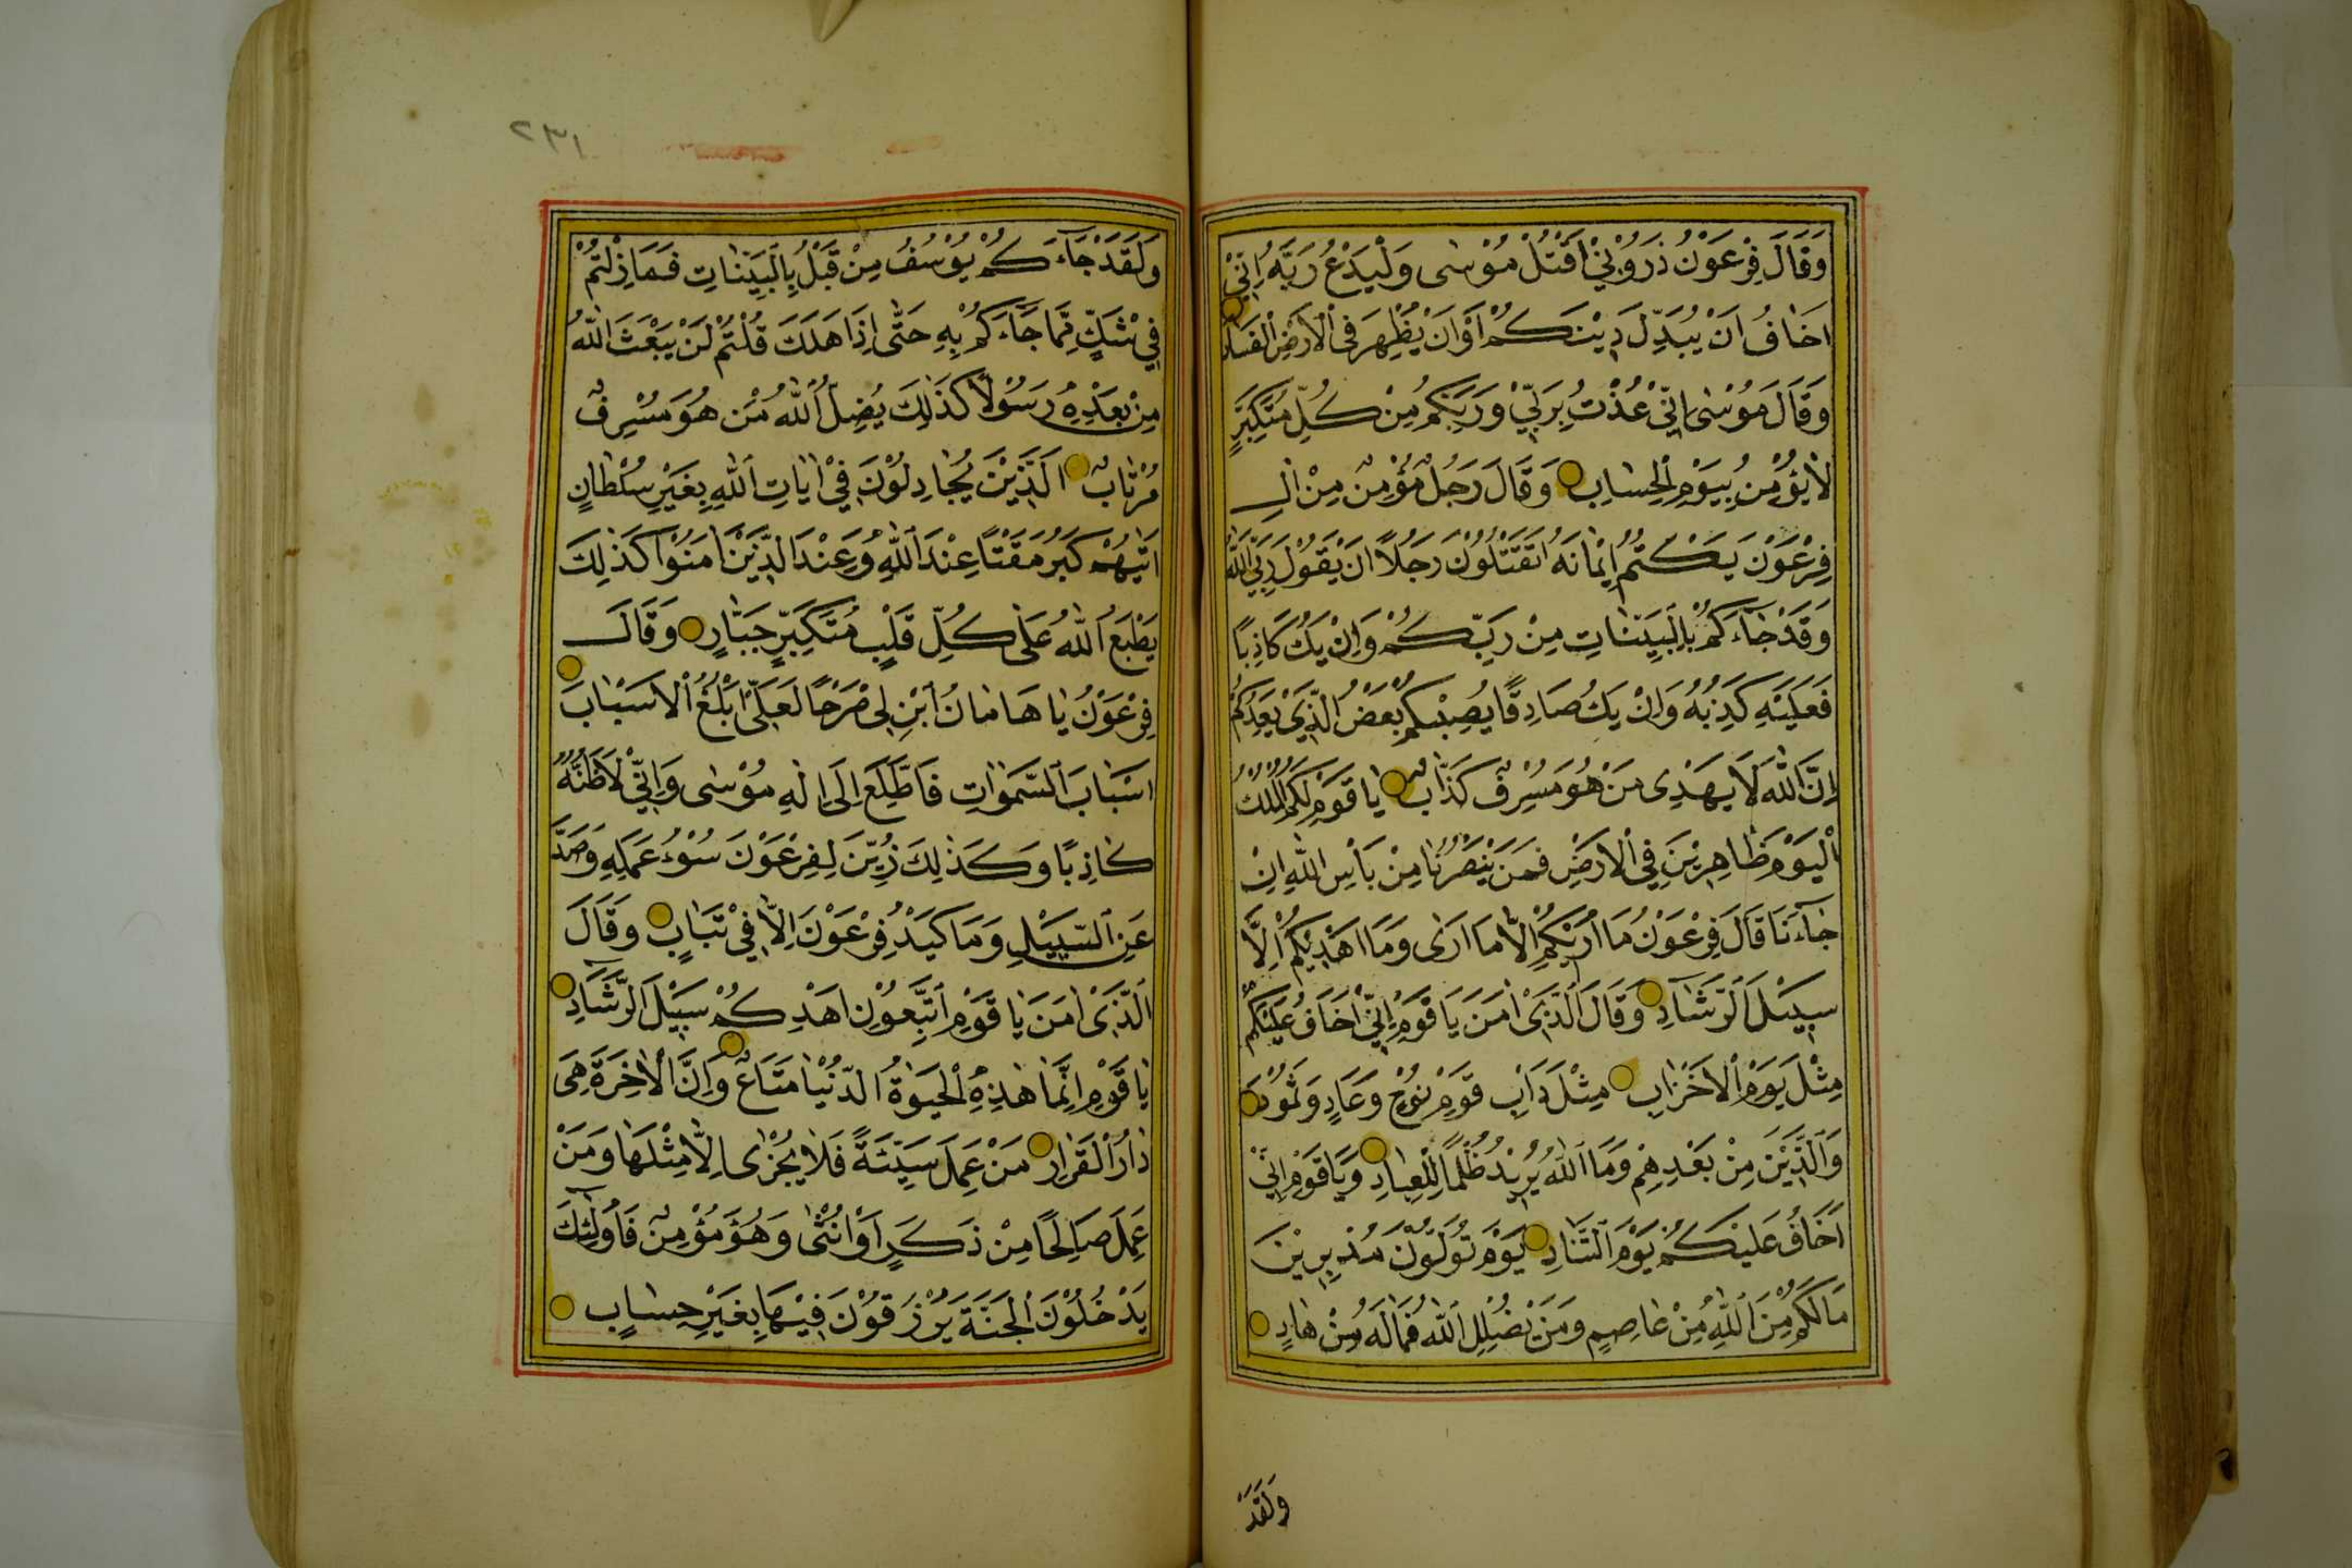 وَقَالَ فِرْعَوْنُ ذَرُوْنِيْ اَقْتُلْ مُوْسٰى وَلْيَدْعُ رَبَّهُ اِنِّيْ
اَخَافُ اَنْ يُبَدِّلَ دِيْنَكُمْ اَوْ اَنْ يُظْهِرَ فِى الْاَرْضِ الْفَسَادَ
وَقَالَ مُوْسٰى اِنِّيْ عُذْتُ بِرَبِّيْ وَرَبِّكُمْ مِنْ كُلِّ مُتَكَبِّرٍ
لَا يُؤْمِنُ بِيَوْمِ الْحِسَابِ وَقَالَ رَجُلٌ مُؤْمِنٌ مِنْ اٰلِ
فِرْعَوْنَ يَكْتُمُ اِيْمَانَهُ اَتَقْتُلُوْنَ رَجُلًا اَنْ يَقُوْلَ رَبِّيَ اللّٰهُ
وَقَدْ جَآءَكُمْ بِالْبَيِّنَاتِ مِنْ رَبِّكُمْ وَاِنْ يَكُ كَاذِبًا
فَعَلَيْهِ كَذِبُهُ وَاِنْ يَكُ صَادِقًا يُصِبْكُمْ بَعْضُ الَّذِيْ يَعِدُكُمْ
اِنَّ اللّٰهَ لَا يَهْدِى مَنْ هُوَ مُسْرِفٌ كَذَّابٌ يَا قَوْمِ لَكُمُ الْمُلْكُ
الْيَوْمَ ظَاهِرِيْنَ فِى الْاَرْضِ فَمَنْ يَنْصُرُنَا مِنْ بَأْسِ اللّٰهِ اِنْ
جَآءَنَا قَالَ فِرْعَوْنُ مَا اُرِيْكُمْ اِلَّا مَا اَرٰى وَمَا اَهْدِيْكُمْ اِلَّا
سَبِيْلَ الرَّشَادِ وَقَالَ الَّذِىْ اٰمَنَ يَا قَوْمِ اِنِّيْ اَخَافُ عَلَيْكُمْ
مِثْلَ يَوْمِ الْاَحْزَابِ مِثْلَ دَاْبِ قَوْمِ نُوْحٍ وَعَادٍ وَثَمُوْدَ
وَالَّذِيْنَ مِنْ بَعْدِهِمْ وَمَا اللّٰهُ يُرِيْدُ ظُلْمًا لِلْعِبَادِ وَيَا قَوْمِ اِنِّيْ
اَخَافُ عَلَيْكُمْ يَوْمَ التَّنَادِ يَوْمَ تُوَلُّوْنَ مُدْبِرِيْنَ
مَا لَكُمْ مِنَ اللّٰهِ مِنْ عَاصِمٍ وَمَنْ يُضْلِلِ اللّٰهُ فَمَا لَهُ مِنْ هَادٍ
وَلَقَدْ
٢٣١
وَلَقَدْ جَآءَكُمْ يُوْسُفُ مِنْ قَبْلُ بِالْبَيِّنَاتِ فَمَا زِلْتُمْ
فِيْ شَكٍّ مِمَّا جَآءَكُمْ بِهِ حَتّٰى اِذَا هَلَكَ قُلْتُمْ لَنْ يَبْعَثَ اللّٰهُ
مِنْ بَعْدِهِ رَسُوْلًا كَذٰلِكَ يُضِلُّ اللّٰهُ مَنْ هُوَ مُسْرِفٌ
مُرْتَابٌ اَلَّذِيْنَ يُجَادِلُوْنَ فِيْ اٰيَاتِ اللّٰهِ بِغَيْرِ سُلْطَانٍ
اَتٰيهُمْ كَبُرَ مَقْتًا عِنْدَ اللّٰهِ وَعِنْدَ الَّذِيْنَ اٰمَنُوْا كَذٰلِكَ
يَطْبَعُ اللّٰهُ عَلٰى كُلِّ قَلْبِ مُتَكَبِّرٍ جَبَّارٍ وَقَالَ
فِرْعَوْنُ يَا هَامَانُ ابْنِ لِى صَرْحًا لَعَلِّى اَبْلُغُ الْاَسْبَابَ
اَسْبَابَ السَّمٰوَاتِ فَاَطَّلِعَ اِلٰى اِلٰهِ مُوْسٰى وَاِنِّيْ لَاَظُنُّهُ
كَاذِبًا وَكَذٰلِكَ زُيِّنَ لِفِرْعَوْنَ سُوْءُ عَمَلِهِ وَصُدَّ
عَنِ السَّبِيْلِ وَمَا كَيْدُ فِرْعَوْنَ اِلَّا فِيْ تَبَابٍ وَقَالَ
الَّذِىْ اٰمَنَ يَا قَوْمِ اتَّبِعُوْنِ اَهْدِكُمْ سَبِيْلَ الرَّشَادِ
يَا قَوْمِ اِنَّمَا هٰذِهِ الْحَيٰوةُ الدُّنْيَا مَتَاعٌ وَاِنَّ الْاٰخِرَةَ هِىَ
دَارُ الْقَرَارِ مَنْ عَمِلَ سَيِّئَةً فَلَا يُجْزٰى اِلَّا مِثْلَهَا وَمَنْ
عَمِلَ صَالِحًا مِنْ ذَكَرٍ اَوْ اُنْثٰى وَهُوَ مُؤْمِنٌ فَاُولٰٓئِكَ
يَدْخُلُوْنَ الْجَنَّةَ يُرْزَقُوْنَ فِيْهَا بِغَيْرِ حِسَابٍ